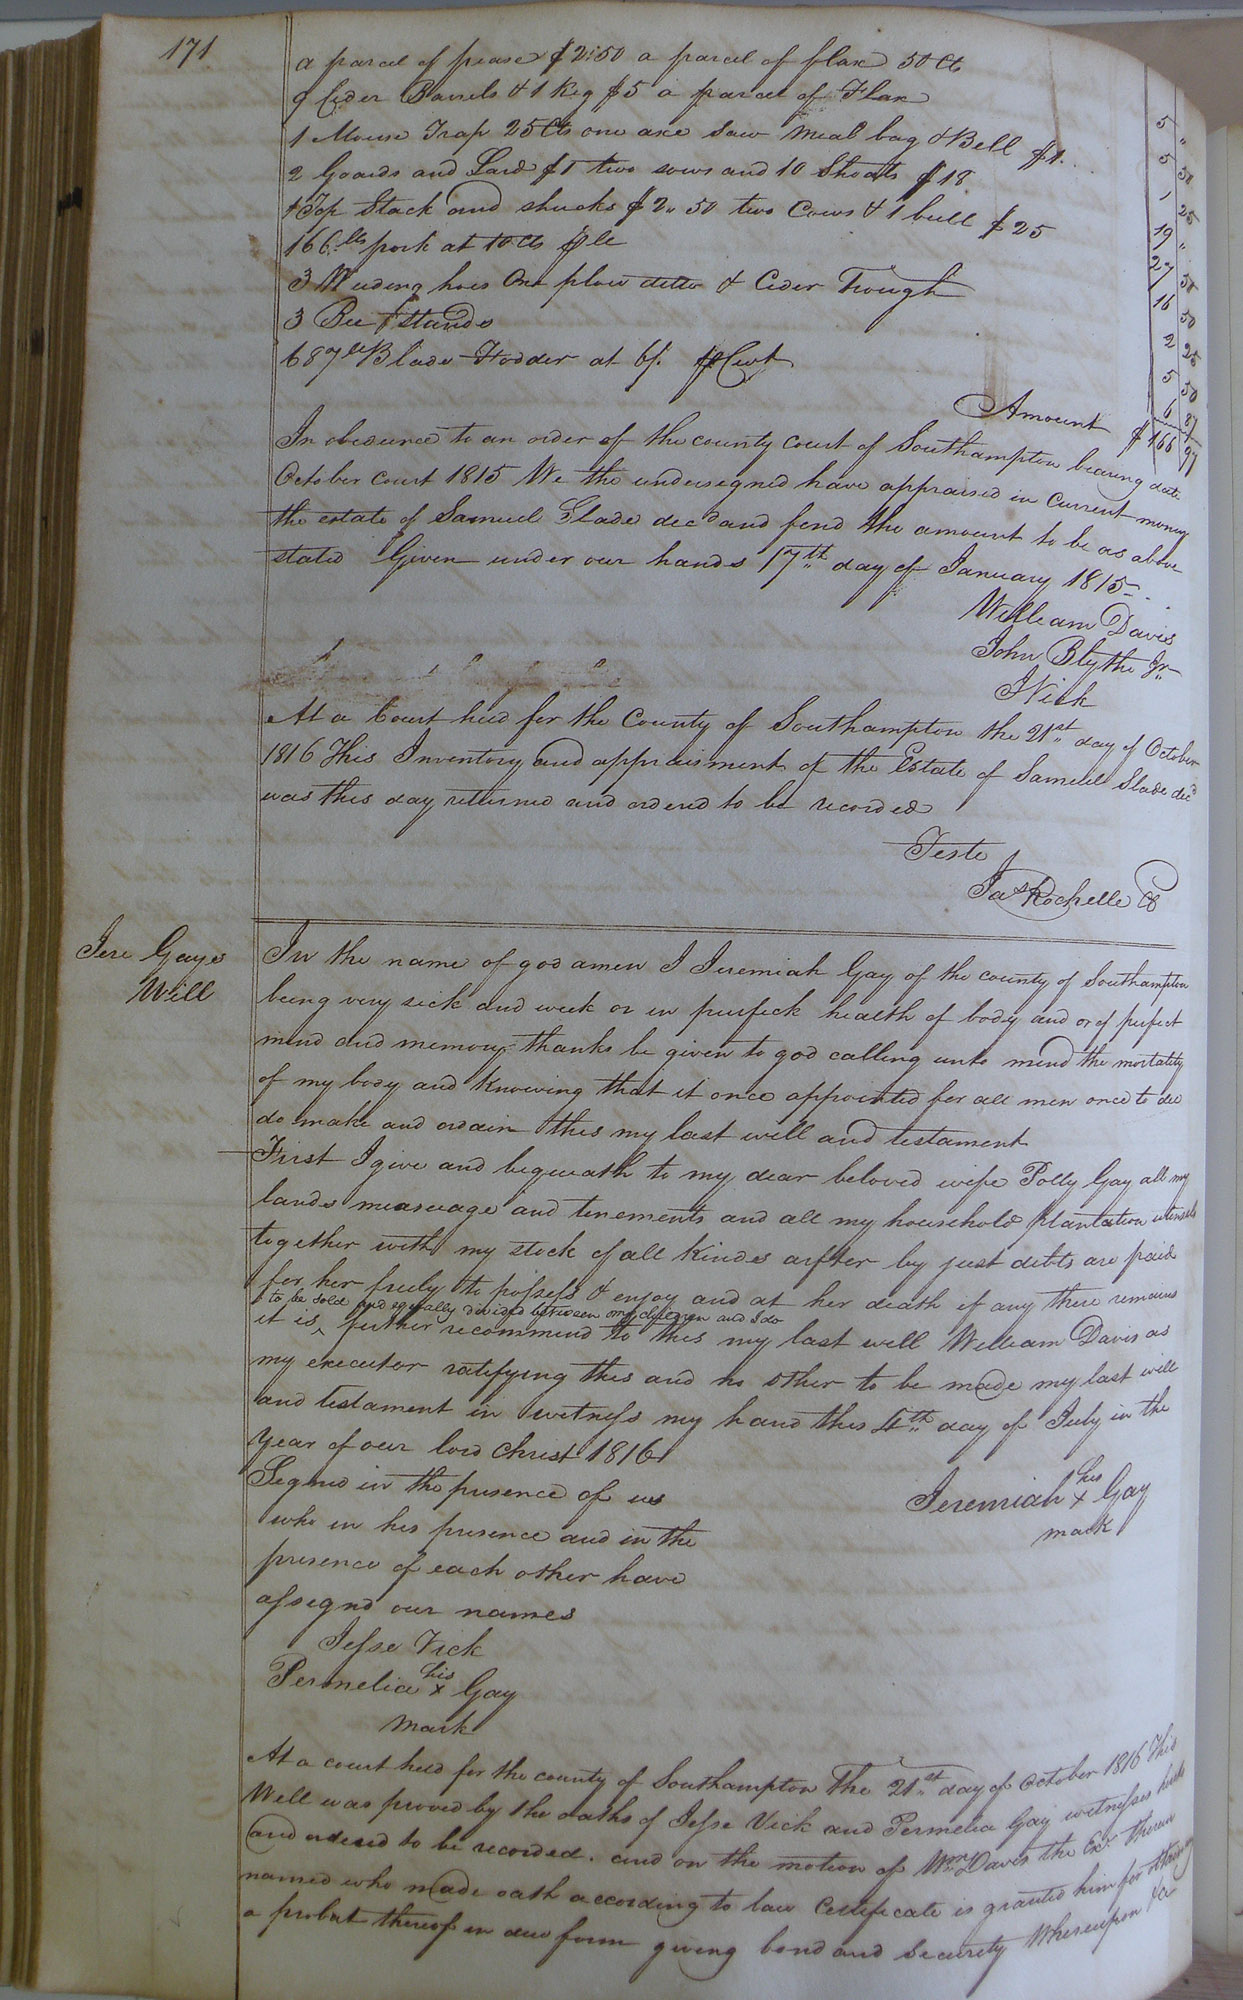 171
a parcel of pease $2.50 a parcel of flax 50 Cts
9 Cider Barrels & 1 Keg $5 a parcel of Flax 5 "
1 Mouse Trap 25 Cts one axe saw meal bag & Bell $1. 5 50
2 Goards and Lard $1 two sows and 10 Shoats $18 1 25
1 Top Stack and shucks $2.50 two Cows & 1 bull $25 19 "
166 lbs pork at 10 cts 27 50
3 Weeding hoes One plow ditto & Cider Trough 16 50
3 Bee stands 2 25
687 Blade Fodder at 6/. Cwt 5 50
6 87
Amount $166 97
In obedience to an order of the county court of Southampton bearing date
October court 1815 We the undersigned have appraised in Current money
the estate of Samuel Slade decd and find the amount to be as above
stated Given under our hands 17th day of January 1815
William Davis
John Blythe Jr
J Vick
At a Court held for the County of Southampton the 21st day of October
1816 This Inventory and appraisment of the Estate of Samuel Slade decd
was this day returned and ordered to be recorded
Teste
Jas Rochelle CC
Jere Gays
Will
In the name of god amen I Jeremiah Gay of the county of Southampton
being very sick and week or in perfeck health of body and or of perfect
mind and memory thanks be given to god calling unto mind the mortality
of my body and knowing that it once appointed for all men once to die
do make and ordain this my last will and testament
First I give and bequeath to my dear beloved wife Polly Gay all my
lands measuage and tenements and all my household plantation utensels
together with my stock of all kindes arfter by just debts are paid
for her freely to possess & enjoy and at her death if any there remains
to be sold and equally devided between my children and I do
it is ^ further recommend to this my last will William Davis as
my executor ratifying this and no other to be made my last will
and testament in witness my hand this 4th day of July in the
year of our lord Christ 1816
Segned in the presence of us
who in his presence and in the
presence of each other have
assegnd our names
his
Jeremiah x Gay
mark
Jesse Vick
his
Permelia x Gay
mark
At a court held for the county of Southampton the 21st day of October 1816 This
Will was proved by the oaths of Jesse Vick and Permelia Gay witnesses hereto
and ordered to be recorded. and on the motion of Wm Davis the Exr therein
named who made oath according to law Certificate is granted him for obtaining
a probat thereof in due form giving bond and Security Whereupon he